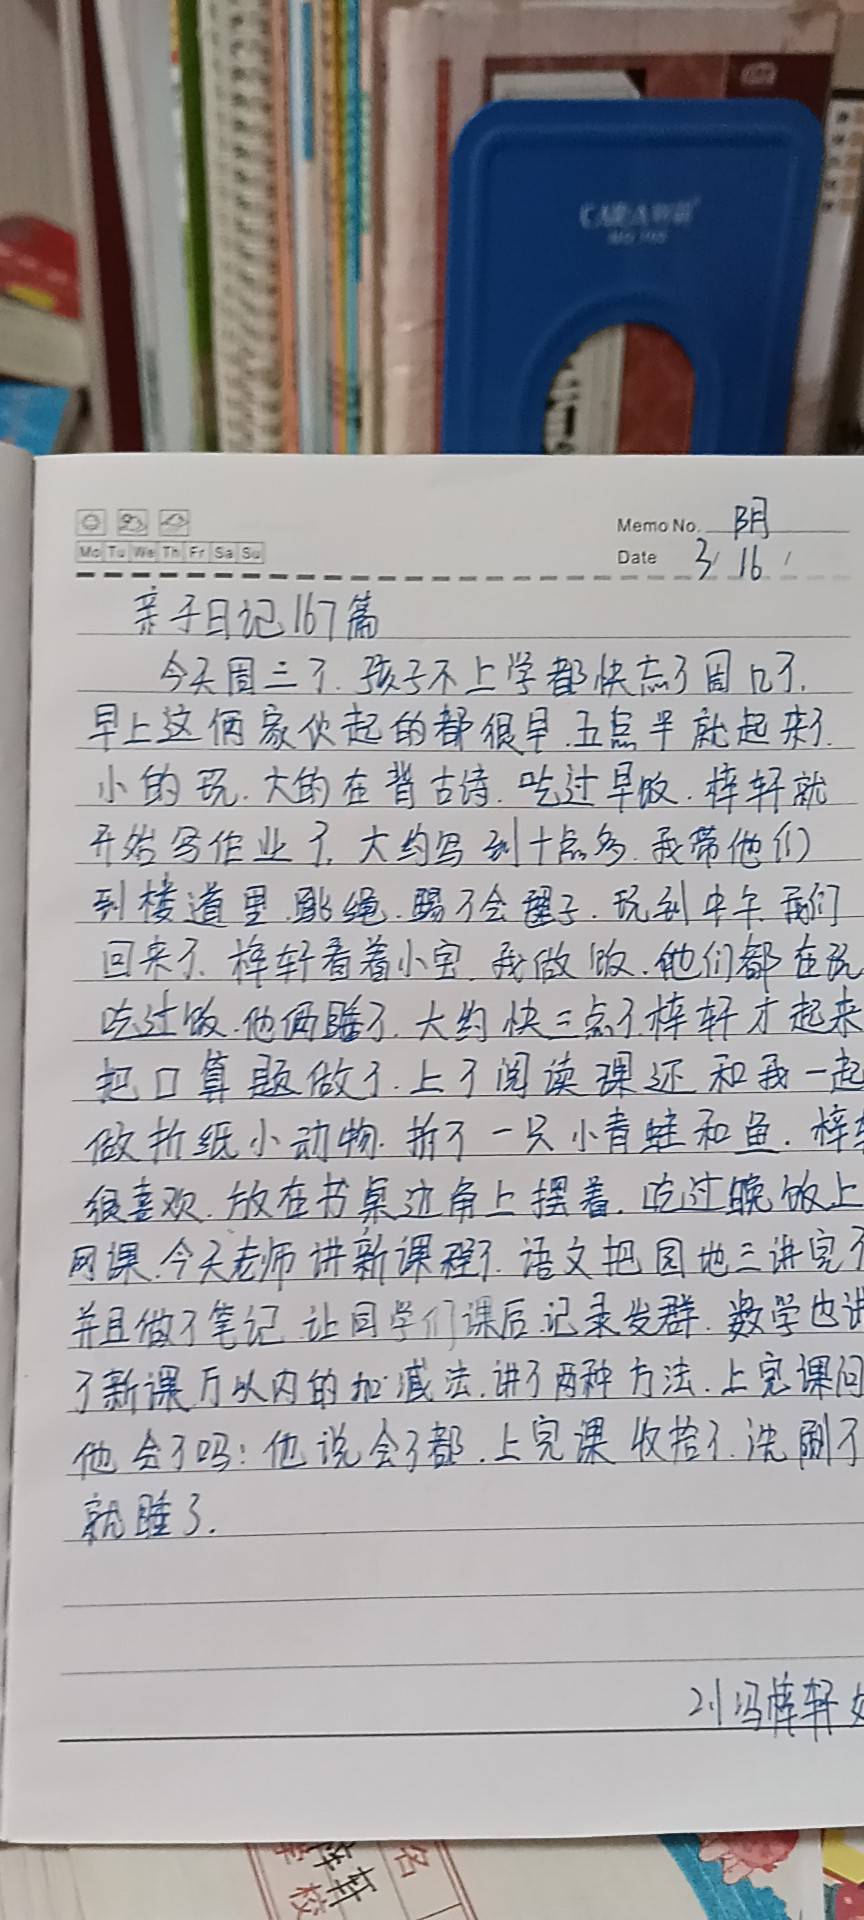 CARA
Memo No. 阴
Mo Tu We Th Fr Sa Su
Date 3/16/
亲子日记167篇
今天周三了.孩子不上学都快忘了周几了.
早上这俩家伙起的都很早.五点半就起来了.
小的玩.大的在背古诗.吃过早饭.梓轩就
开始写作业了.大约写到十点多.我带他们
到楼道里.跳绳.踢了会毽子.玩到中午.我们
回来了.梓轩看着小宝.我做饭.他们都在玩
吃过饭.他俩睡了.大约快三点了梓轩才起来
把口算题做了.上了阅读课还和我一起
做折纸小动物.折了一只小青蛙和鱼.梓
很喜欢.放在书桌边角上摆着.吃过晚饭上
网课.今天老师讲新课程了.语文把园地三讲完了
并且做了笔记.让同学们课后记录发群.数学也讲
了新课万以内的加减法.讲了两种方法.上完课问
他会了吗:他说会了都.上完课收拾了.洗刷了
就睡了.
21冯梓轩
名
梓轩
学校